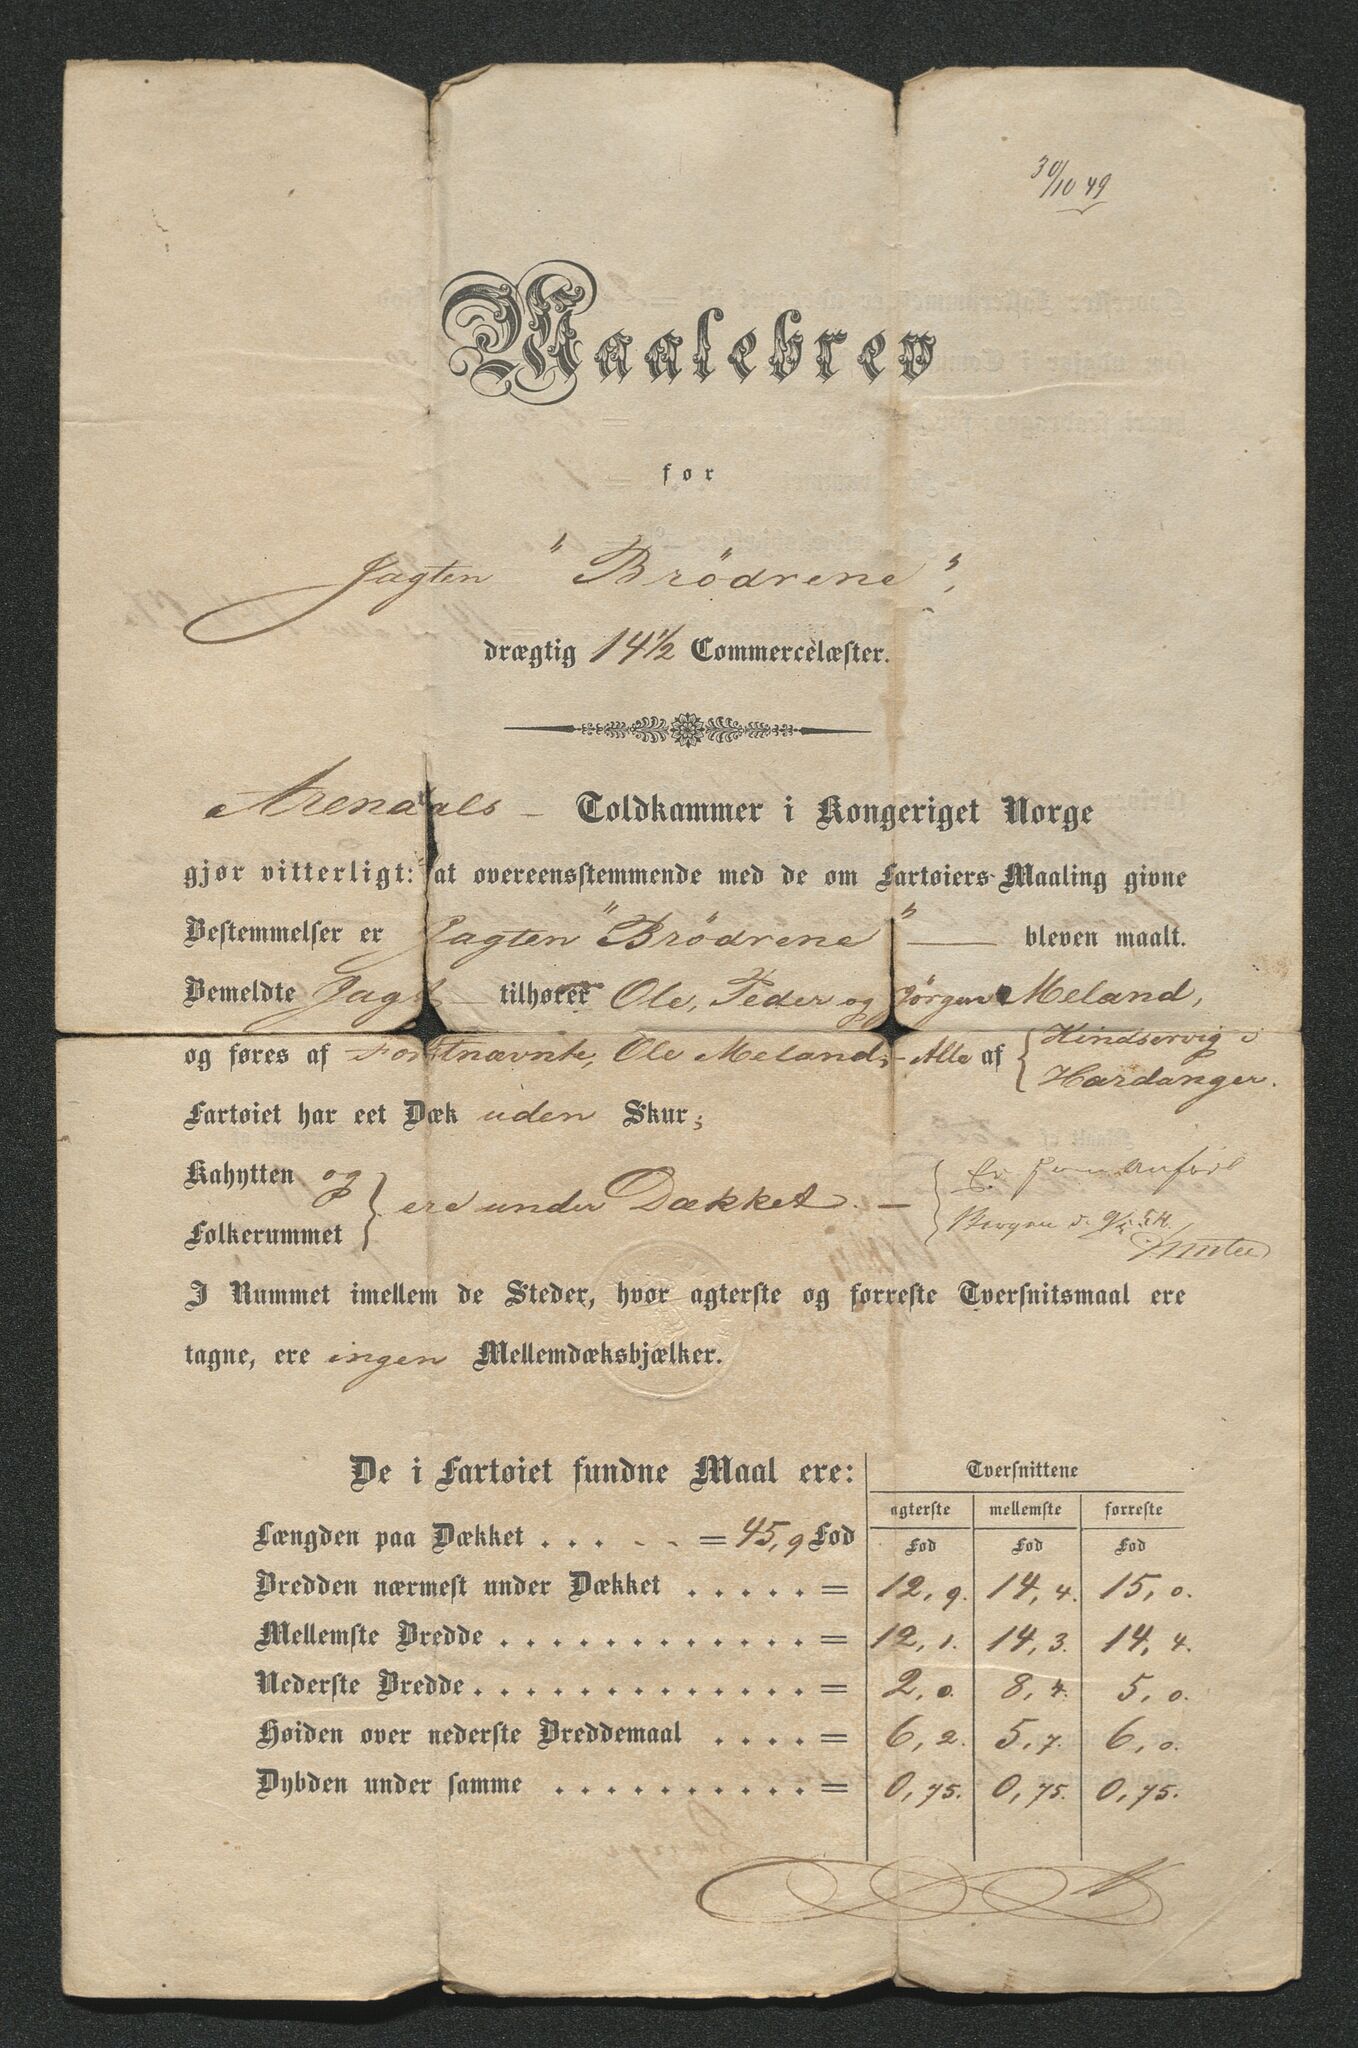 30/10 49
Maalebrev
før
Jagten "Brödrene",
drægtig 14½ Commercelæster.
Arendals - Toldkammer i Kongeriget Norge
gjør vitterligt: at overeensstemmende med de om Fartøiers Maaling givne
Bestemmelser er Jagten "Brödrene" — bleven maalt.
Bemeldte Jagt — tilhører Ole, Peder og Jörgen Meland,
og føres af Førstnævnte, Ole Meland, - Alle af { Kindservig i
Hardanger.
Fartøiet har eet Dæk uden Skur;
Kahytten og
Folkerummet } ere under Dækket. — { Er som Anført
Bergen d.
J Rummet imellem de Steder, hvor agterste og forreste Tversnitsmaal ere
tagne, ere ingen Mellemdæksbjælker.
De i Fartøiet fundne Maal ere: Tversnittene
agterste mellemste forreste
Længden paa Dækket . . . - - = 45,9 Fod Fod Fod Fod
Bredden nærmest under Dækket . . . . . = 12,9. 14,4. 15,0.
Mellemste Bredde . . . . . . . . . . . . = 12,1. 14,3. 14,4.
Nederste Bredde . . . . . . . . . . . . . = 2,0. 8,4. 5,0.
Høiden over nederste Breddemaal . . . . = 6,2. 5,7. 6,0.
Dybden under samme . . . . . . . . . . = 0,75. 0,75. 0,75.